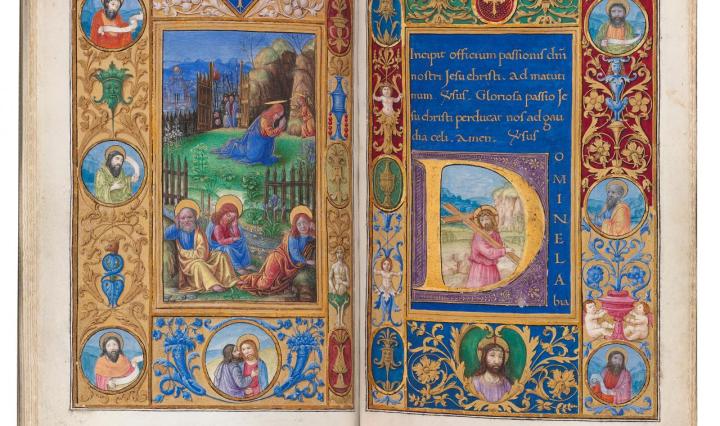 Incipit officium passionis dñi
nostri Jesu christi. Ad matuti
num. Ꝟsus. Gloriosa passio Je
su christi perducat nos ad gau
dia celi. Amen. Ꝟsus
DOMINE LA
bia